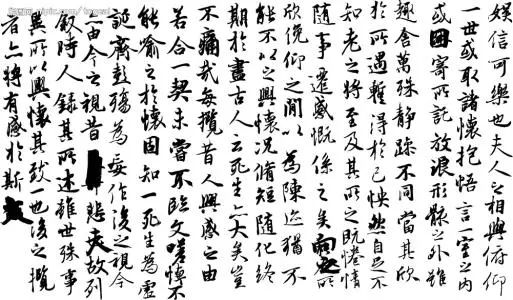 娱信可樂也夫人之相與俯仰
一世或取諸懷抱悟言一室之内
或因寄所託放浪形骸之外雖
趣舍萬殊静躁不同當其欣
於所遇蹔得於己怏然自足不
知老之將至及其所之既惓情
隨事遷感慨係之矣向之所
欣俛仰之閒以為陳迹猶不
能不以之興懷況脩短隨化終
期於盡古人云死生亦大矣豈
不痛哉每攬昔人興感之由
若合一契未嘗不臨文嗟悼不
能喻之於懷固知一死生為虛
誕齊彭殤為妄作後之視今
亦由今之視昔悲夫故列
叙時人録其所述雖世殊事
異所以興懷其致一也後之攬
者亦將有感於斯文